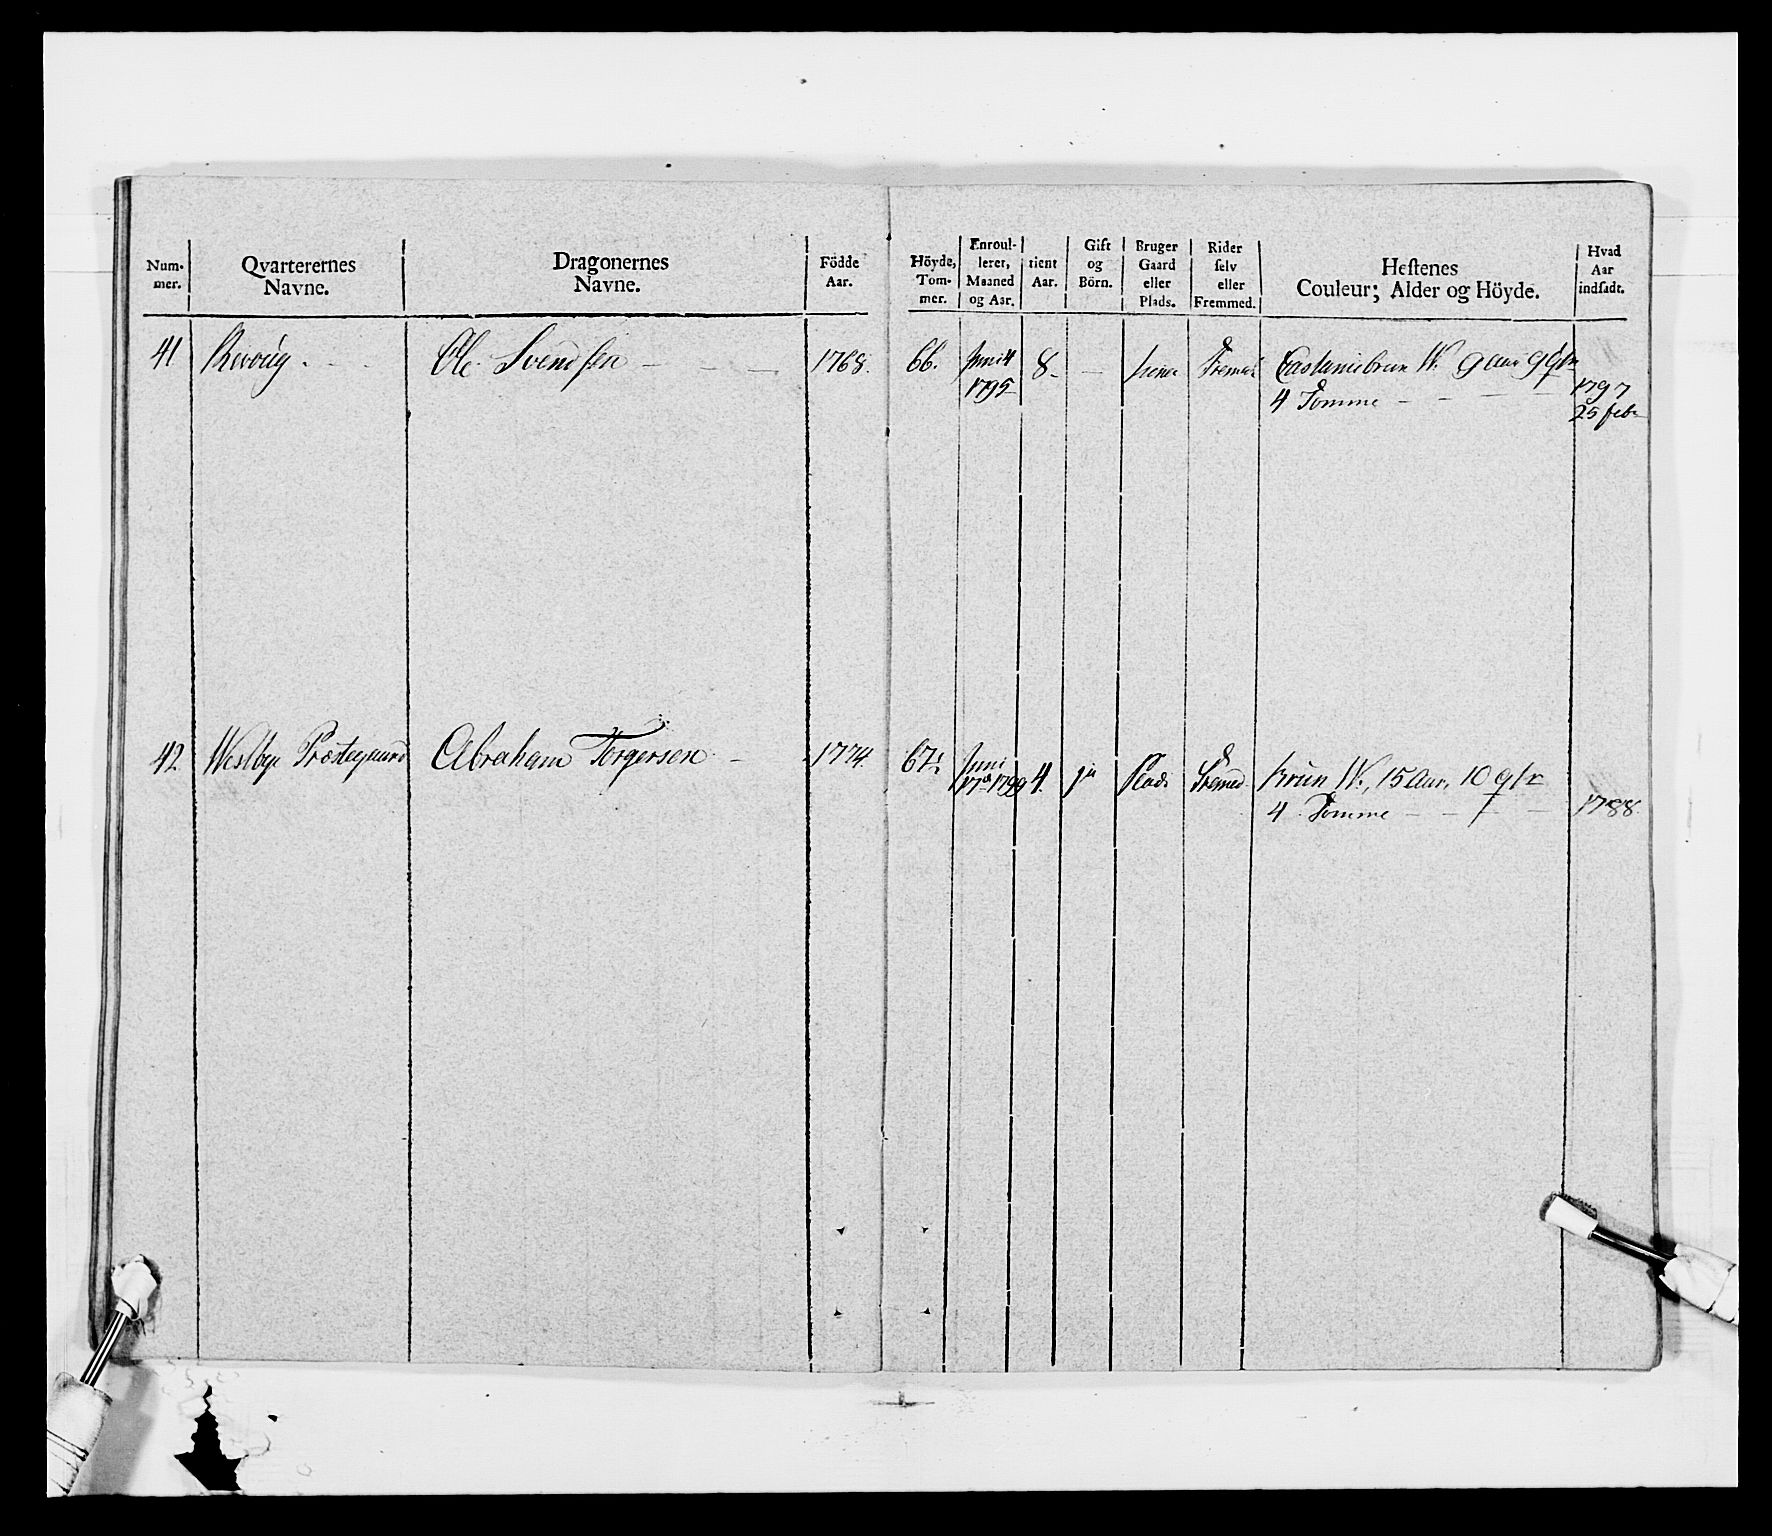 Num-
mer.
Qvarterernes
Navne.
Dragonernes
Navne.
Födde
Aar.
Höyde,
Tom-
mer.
Enroul-
leret,
Maaned
og Aar.
tient
Aar.
Gift
og
Börn.
Bruger
Gaard
eller
Plads.
Rider
selv
eller
Fremmed.
Hestenes
Couleur; Alder og Höyde.
Hvad
Aar
indsadt.
41 Ole Svendsen - - - 1768. 66. Juni 4 8 - - Fremed Castaniebrun W. 9 aar 9 qr
1795 4 Tomme - - - - 1797
25 febr
42 Westbye Præstegaard Abraham Torgersen - 1774. 67. Juni 4. ja Plads Fremed brun W., 15 Aar, 10 qr
17de 1799 4 Tomme - - - - 1788.